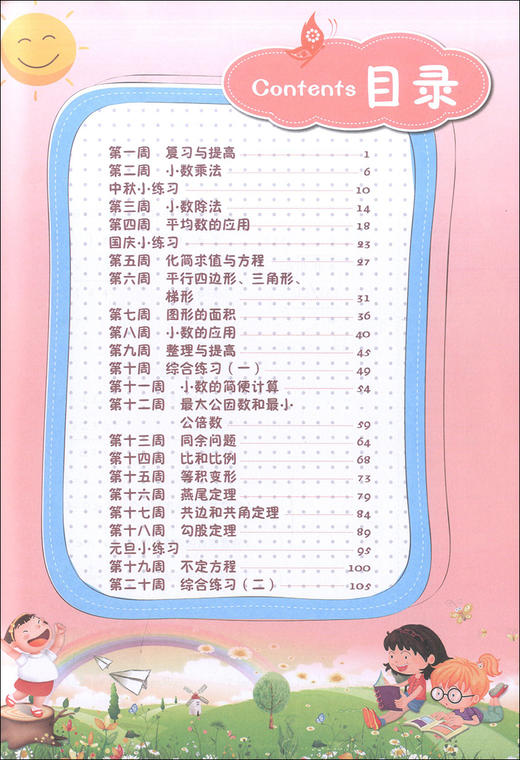 Contents 目录
第一周 复习与提高 1
第二周 小数乘法 6
中秋小练习 10
第三周 小数除法 14
第四周 平均数的应用 18
国庆小练习 23
第五周 化简求值与方程 27
第六周 平行四边形、三角形、
梯形 31
第七周 图形的面积 36
第八周 小数的应用 40
第九周 整理与提高 45
第十周 综合练习（一） 49
第十一周 小数的简便计算 54
第十二周 最大公因数和最小
公倍数 59
第十三周 同余问题 64
第十四周 比和比例 68
第十五周 等积变形 73
第十六周 燕尾定理 79
第十七周 共边和共角定理 84
第十八周 勾股定理 89
元旦小练习 95
第十九周 不定方程 100
第二十周 综合练习（二） 105